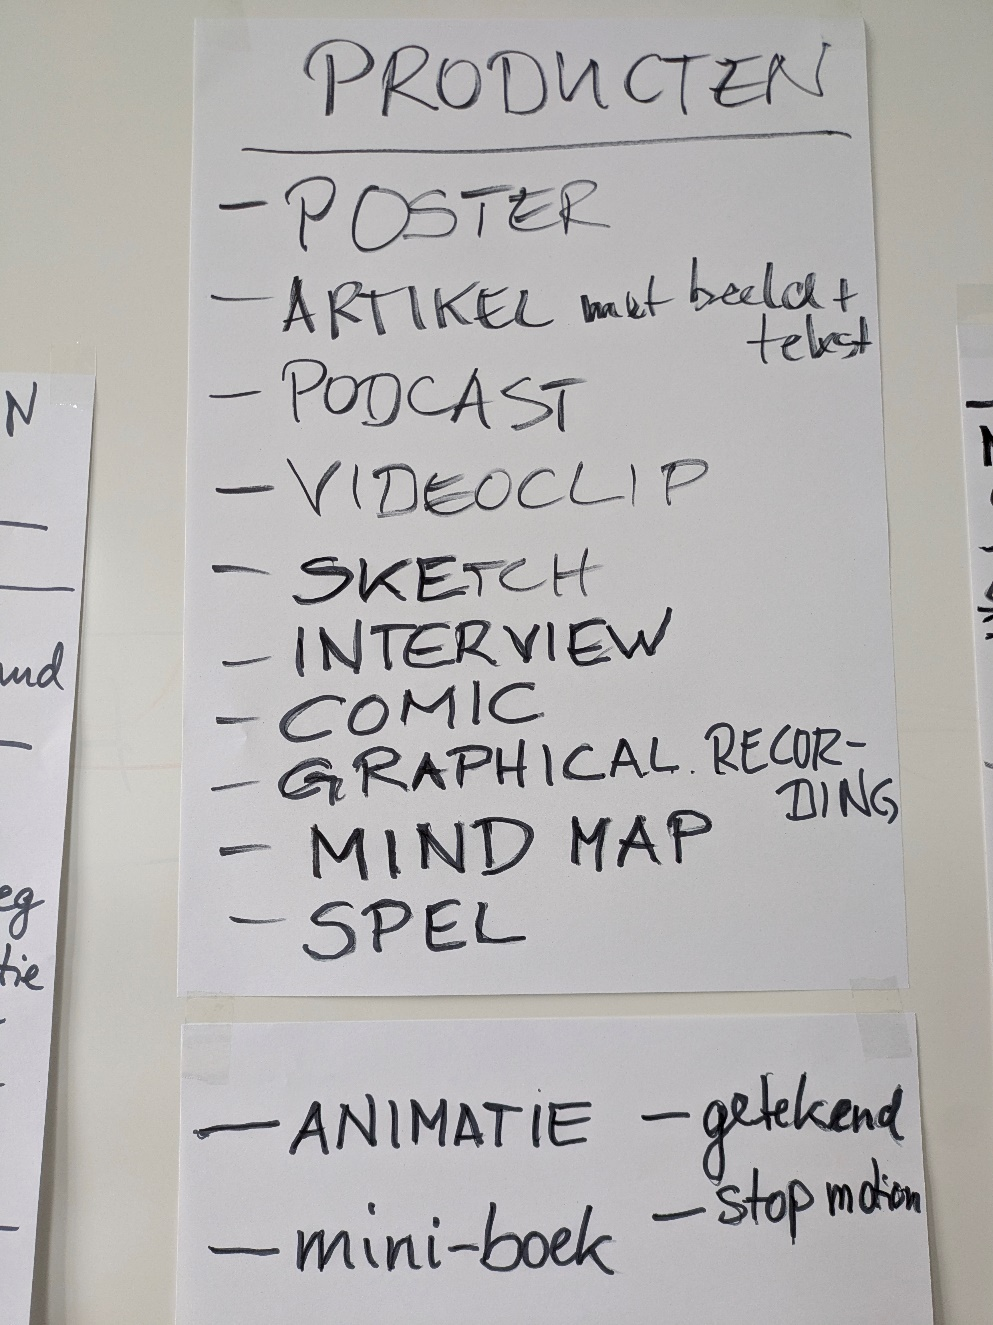 PRODUCTEN
- POSTER
- ARTIKEL met beeld +
tekst
- PODCAST
- VIDEOCLIP
- SKETCH
- INTERVIEW
- COMIC
- GRAPHICAL RECOR-
DING
- MIND MAP
- SPEL
- ANIMATIE - getekend
- stop motion
- mini-boek
N
und
eg
tie